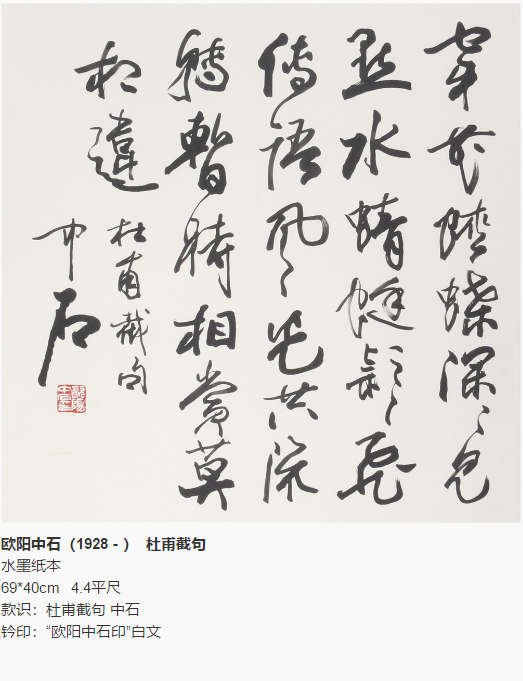 穿花蛺蝶深々見
點水蜻蜓款々飛
傳語風光共流
轉暫時相賞莫
相違
杜甫截句
中石
欧阳中石（1928 - ） 杜甫截句
水墨纸本
69*40cm 4.4平尺
款识：杜甫截句 中石
钤印：“欧阳中石印”白文